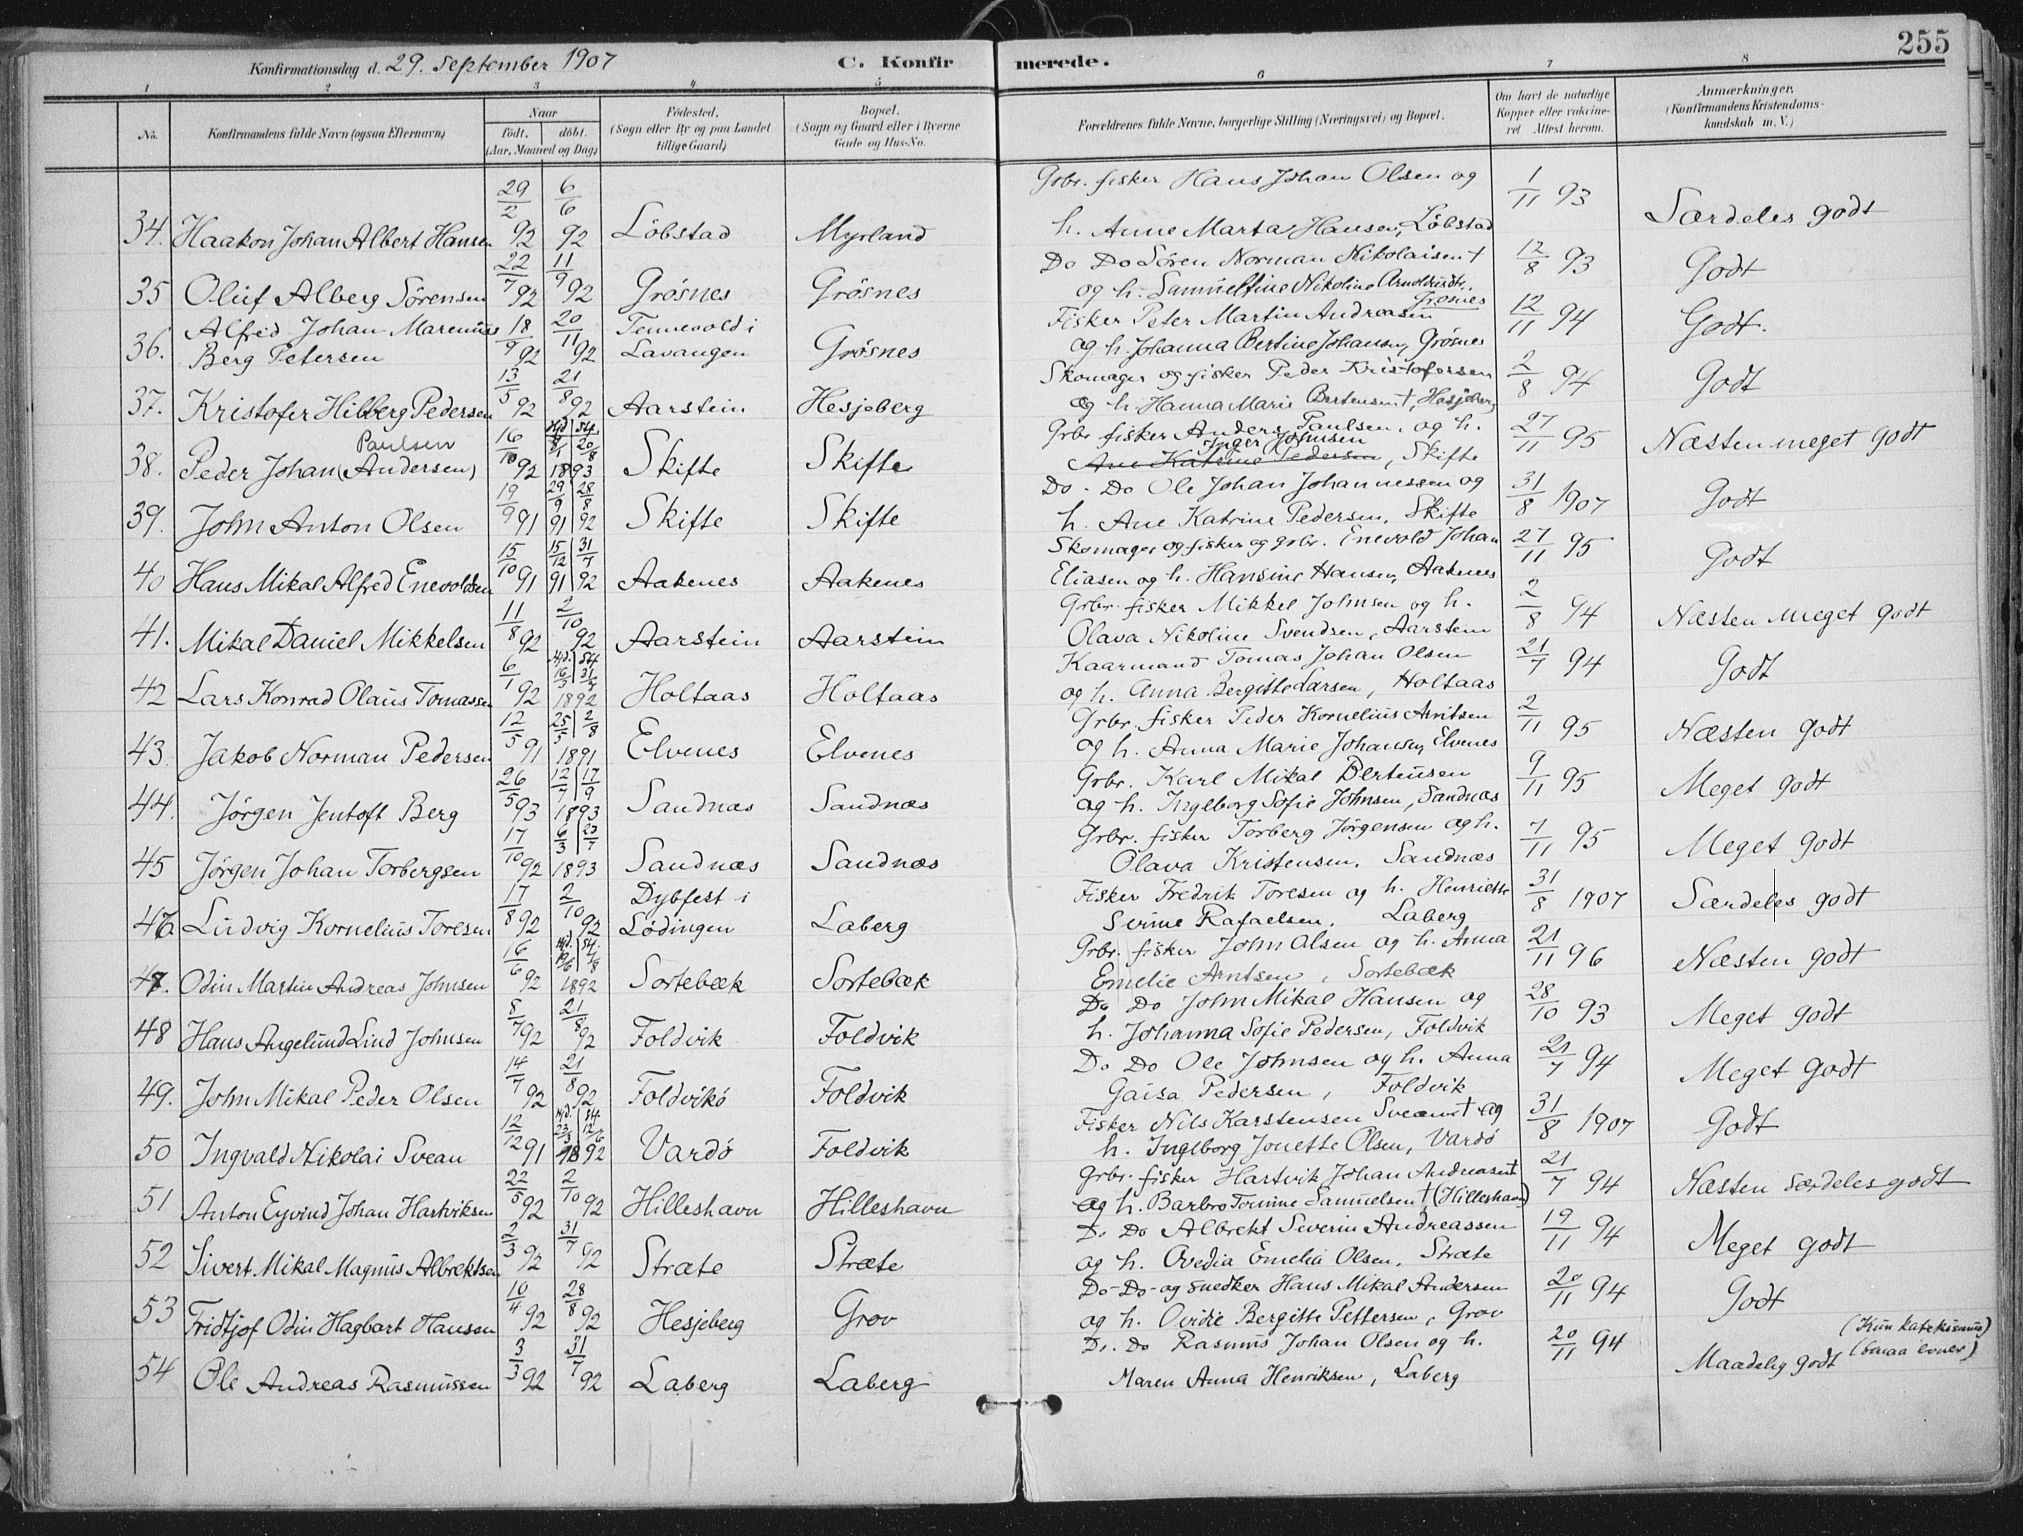 255
Konfirmationsdag d. 29. September 1907 C. Konfirmerede.
1 2 3 4 5 6 7 8
No. Konfirmandens fulde Navn (ogsaa Efternavn) Naar födt. döbt. (Aar, Maaned og Dag) Födested. (Sogn eller By og paa Landet tillige Gaard) Bopæl. (Sogn og Gaard eller i Byerne Gade og Hus-No. Forældrenes fulde Navne, borgerlige Stilling (Næringsvei) og Bopæl. Om havt de naturlige Kopper eller vakcineret. Attest herom. Anmærkninger. (Konfirmandens Kristendomskundskab m. V.)
34. Haakon Johan Albert Hansen 29/2 92 6/6 92 Löbstad Myrland Grbr. fisker Hans Johan Olsen og h. Anne Marta Hansen, Löbstad 1/11 93 Særdeles godt
35 Oluf Alberg Sörensen 22/7 92 11/9 92 Grösnes Grösnes Do Do Sören Norman Nikolaisen † og h. Samueltine Nikoline Arnoldusdtr. Grosnes 12/8 93 Godt
36. Alfred Johan Marenius Berg Petersen 18/9 92 20/11 92 Tennevold i Lavangen Grösnes Fisker Peter Martin Andreasen og h. Johanna Bertine Johansen, Grösnes 12/11 94 Godt.
37. Kristofer Hilberg Pedersen 13/5 92 21/8 92 Aarstein Hesjeberg Skomager og fisker Peder Kristofersen og h. Hanna Marie Bertensen †, Hesjeberg 2/8 94 Godt
38. Peder Johan (Andersen) Paulsen 16/10 92 Hjd. 8/1 | St. 20/8 1893 Skifte Skifte Grbr fisker Anders Paulsen, og h. Inger Johnsen Ane Katrine Pedersen, Skifte 27/11 95 Næsten meget godt
39. John Anton Olsen 19/9 91 29/9 91 | 28/8 92 Skifte Skifte Do. Do Ole Johan Johannessen og h. Ane Katrine Pedersen, Skifte 31/8 1907 Godt
40 Hans Mikal Alfred Enevoldsen 15/10 91 15/12 91 | 31/7 92 Aakenes Aakenes Skomager og fisker og grbr. Enevold Johan Eliasen og h. Hansine Hansen, Aakenes 27/11 95 Godt
41. Mikal Daniel Mikkelsen 11/8 92 2/10 92 Aarstein Aarstein Grbr. fisker Mikkel Johnsen og h. Olava Nikoline Svendsen, Aarstein 2/8 94 Næsten meget godt
42 Lars Konrad Olaus Tomassen 6/1 92 Hjd. 16/3 | St. 31/7 1892 Holtaas Holtaas Kaarmand Tomas Johan Olsen og h. Anna Bergitte Larsen, Holtaas 21/7 94 Godt
43. Jakob Norman Pedersen 12/5 91 25/5 | 2/8 1891 Elvenes Elvenes Grbr. fisker Peder Kornelius Arntsen og h. Anna Marie Johansen, Elvenes 2/11 95 Næsten godt
44. Jörgen Jentoft Berg 26/5 93 12/7 | 17/9 1893 Sandnæs Sandnæs Grbr. Karl Mikal Berteusen og h. Ingeborg Sofie Johnsen, Sandnæs 9/11 95 Meget godt
45 Jörgen Johan Torbergsen 17/10 92 6/3 | 23/7 1893 Sandnæs Sandnæs Grbr. fisker Torberg Jörgensen og h. Olava Kristensen, Sandnæs 7/11 95 Meget godt
46 Ludvig Kornelius Toresen 17/8 92 2/10 92 Dybfest i Lödingen Laberg Fisker Fredrik Toresen og h. Henriette Sevrine Rafaelsen, Laberg 31/8 1907 Særdeles godt
47. Odin Martin Andreas Johnsen 16/6 92 Hjd. 19/6 | St. 7/8 1892 Sortebæk Sortebæk Grbr. fisker John Olsen og h. Anna Emelie Arntsen, Sortebæk 21/11 96 Næsten godt
48 Hans Angelund Lind Johnsen 8/7 92 21/8 92 Foldvik Foldvik Do Do John Mikal Hansen og h. Johanna Sofie Pedersen, Foldvik 28/10 93 Meget godt
49. John Mikal Peder Olsen 14/7 92 21/8 92 Foldvik Foldvik Do Do Ole Johnsen og h. Anna Gaisa Pedersen, Foldvik 21/7 94 Meget godt
50 Ingvald Nikolai Svean 12/12 91 Hjd. 23/3 | St. 12/6 1892 Vardö Foldvik Fisker Nils Karstensen Svean † og h. Ingeborg Jonette Olsen, Vardö 31/8 1907 Godt
51 Anton Eyvind Johan Hartviksen 22/5 92 2/10 92 Hilleshavn Hilleshavn Grbr. fisker Hartvik Johan Andreasen † og h. Barbro Tomine Samuelsen † (Hilleshavn) 21/7 94 Næsten særdeles godt
52 Sivert Mikal Magnus Albrektsen 2/3 92 31/7 92 Stræte Stræte Do Do Albrekt Severin Andreassen og h. Ovedia Emelia Olsen, Stræte 19/11 94 Meget godt
53 Fridtjof Odin Hagbart Hansen 10/4 92 28/8 92 Hesjeberg Grov Do - Do - og snedker Hans Mikal Andersen og h. Ovidie Bergitte Pettersen, Grov 20/11 94 Godt
54 Ole Andreas Rasmussen 3/3 92 31/7 92 Laberg Laberg Do. Do Rasmus Johan Olsen og h. Maren Anna Henriksen, Laberg 20/11 94 Maadelig godt (Kun katekismus) (smaa evner)